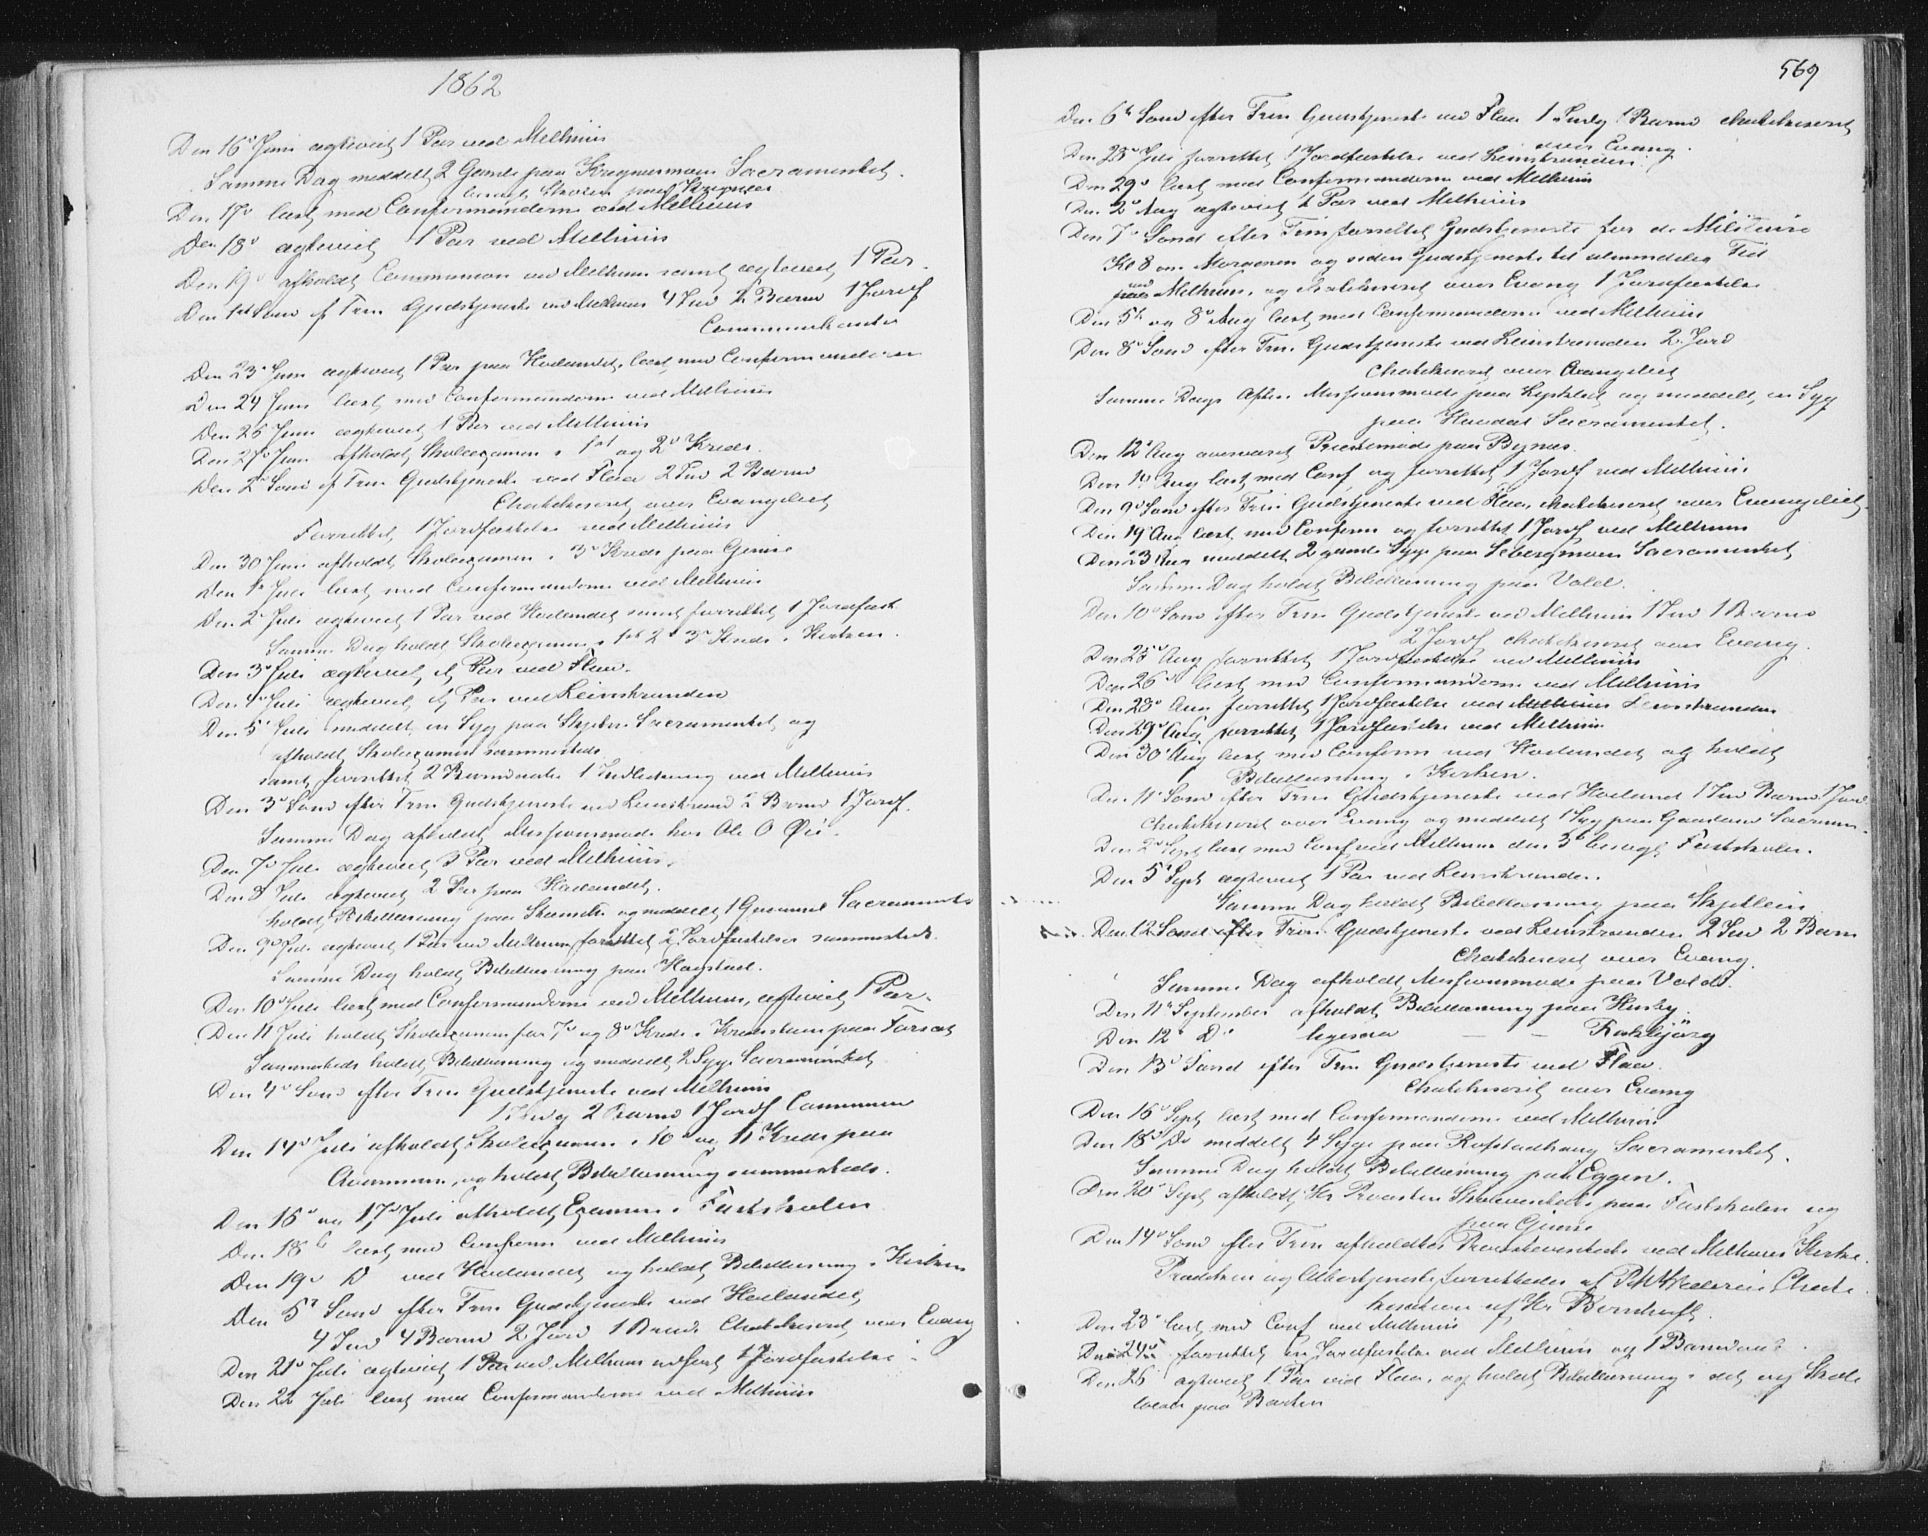 1862
Den 16de Juni egteviet 1 Par ved Melhuus
Samme Dag meddelt 2 Gamle paa Kregnesmoen Sacramentet.
besøgt Skolen paa Kregnes
Den 17de læst med Confirmanderne ved Melhuus
Den 18de egteviet 1 Par ved Melhuus
Den 19de afholdt Communion ved Melhuus samt egteviet 1 Par.
Den 1ste Sønd ef Trin Gudstjeneste ved Melhuus 4 Ind 2 Barne 1 Jordf
Communikanter
Den 23de Juni egteviet 1 Par paa Hølandet, læst med Confirmanderne
Den 24 Juni læst med Confirmanderne ved Melhuus
Den 26 Juni egteviet 1 Par ved Melhuus
Den 27de Juni afholdt Skoleexamen i 1ste og 2de Kreds.
Den 2de Sønd ef Trin Gudstjeneste ved Flaa 2 Ind 2 Barne
Chatekiseret over Evangeliet
Forrettet 1 Jordfæstelse ved Melhuus
Den 30 Juni afholdt Skoleexamen i 3de Kreds paa Gimse
Den 1ste Juli læst med Confirmanderne ved Melhuus
Den 2de Juli egteviet 1 Par ved Hølandet samt forrettet 1 Jordfæst
Samme Dag holdt Skoleexamen i 1ste 2de 3de Kreds i Kirken.
Den 3de Juli egteviet et Par ved Flaa.
Den 4de Juli egteviet et Par ved Leinstranden
Den 5te Juli meddelt en Syg paa Skjetne Sacramentet og
afholdt Skoleexamen sammesteds
samt forrettet 2 Barnedaabe 1 Indledning ved Melhuus
Den 3de Sønd efter Trin Gudstjeneste ved Leinstrand 2 Barne 1 Jordf.
Samme Dag afholdt Missionsmøde hos Ole O Øie.
Den 7de Juli egteviet 3 Par ved Melhuus.
Den 8 Juli egteviet 2 Par paa Hølandet.
holdt Bibellæsning paa og meddelt 1 Gammel Sacramentet
Den 9de Juli egteviet 1 Par ved Melhuus forrettet 2 Jordfæstelser sammesteds.
Samme Dag holdt Bibellæsning paa Hagstad.
Den 10de Juli læst med Confirmanderne ved Melhuus, egteviet 1 Par.
Den 11 Juli holdt Skoleexamen for 7de og 8de Kreds i paa
Sammesteds holdt Bibellæsning og meddelt 2 Syge Sacramentet
Den 4de Sønd efter Trin Gudstjeneste ved Melhuus
1 Indg 2 Barne 1 Jordf Communion
Den 14de Juli afholdt Skoleexamen i 10de og 11 Kreds paa
og holdt Bibellæsning sammesteds.
Den 16de og 17de Juli afholdt Examen i Fastskolen
Den 18de læst med Confirm ved Melhuus
Den 19de D ved Hølandet og holdt Bibellæsning i Kirken
Den 5te Sønd efter Trin Gudstjeneste ved Hølandet
4 Ind 4 Barne 2 Jord 1 Brud Chatekiseret over Evang
Den 21de Juli egteviet 1 Par ved Melhuus udført 1 Jordfæstelse.
Den 22 Juli læst med Confirmanderne ved Melhuus
569
Den 6te Sønd efter Trin Gudstjeneste ved Flaa 1 Indg 1 Barne chatekiseret
over Evang.
Den 28de Juli forrettet 1 Jordfæstelse ved Leinstranden.
Den 29de læst med Confirmanderne ved Melhuus
Den 2de Aug egteviet 1 Par ved Melhuus
Den 7de Sønd efter Trin forrettet Gudstjeneste for de Militaire
Kl 8 om Morgenen og siden Gudstjeneste til almindelig Tid
ved
paa Melhuus, og chatekiseret over Evang 1 Jordfæstelse
Den 5te og 8de Aug læst med Confirmanderne ved Melhuus
Den 8de Sønd efter Trin Gudstjeneste ved Leinstranden 2 Jord
Chatekiseret over Evangeliet
Samme Dags Aften Missionsmøde paa og meddelt en Syg
paa Sacramentet.
Den 12te Aug overværet Præstemøde paa Bynæs.
Den Aug læst med Conf og forrettet 1 Jordf ved Melhuus
Den 9de Sønd efter Trin Gudstjeneste ved Flaa, chatekiseret over Evangeliet.
Den 19 Aug læst med Confirm og forrettet 1 Jordf ved Melhuus
Den 23 Aug meddelt 2 gamle Syge paa Sacramentet
Samme Dag holdt Bibellæsning paa Vold.
Den 10de Sønd efter Trin Gudstjeneste ved Melhuus 1 Ind 1 Barne
2 Jordf chatekiseret over Evang.
Den 25de Aug forrettet 1 Jordfæstelse ved Melhuus
Den 26de læst med Confirmanderne ved Melhuus
Den 28de Aug forrettet 1 Jordfæstelse ved Melhuus Leinstranden
Den 29de Aug forrettet 1 Jordfæstelse ved Melhuus
Den 30te Aug læst med Confirm ved Hølandet og holdt
Bibellæsning i Kirken.
Den 11te Sønd efter Trin Gudstjeneste ved Høland 1 Ind Barne 1 Jord
chatekiseret over Evang og meddelt 1 Syg paa Sacram.
Den 2de Sept læst med Conf ved Melhuus den 3de besøgt Fastskolen.
Den 5te Sept egteviet 1 Par ved Leinstranden.
Samme Dag holdt Bibellæsning paa Skjetlein
Den 12 Sønd efter Trin Gudstjeneste ved Leinstranden 2 Ind 2 Barn
Chatekiseret over Evang.
Samme Dag afholdt Missionsmøde paa Vold.
Den 11te September afholdt Bibellæsning paa Husby.
Den 12te Do ligesaa — —
Den 13de Sønd efter Trin Gudstjeneste ved Flaa.
Chatekiseret over Evang
Den 16de Sept læst med Confirmanderne ved Melhuus
Den 18de Do meddelt 4 Syge paa Rofstadhaug Sacramentet.
Samme Dag holdt Bibellæsning paa Eggen.
Den 20de Sept afholdt Hr Provsten Skolevisitats paa Fastskolen og
paa Gimse
Den 14de Sønd efter Trin afholdtes Provstevisitats ved Melhuus Kirke.
Prædiken og Altertjeneste forrettedes af Chate
kisation af Hr
Den 23de læst med Conf ved Melhuus
Den 24de forrettet en Jordfæstelse ved Melhuus og 1 Barnedaab.
Den 26 egteviet 1 Par ved Flaa, og holdt Bibellæsning i det ny Skole
locale paa